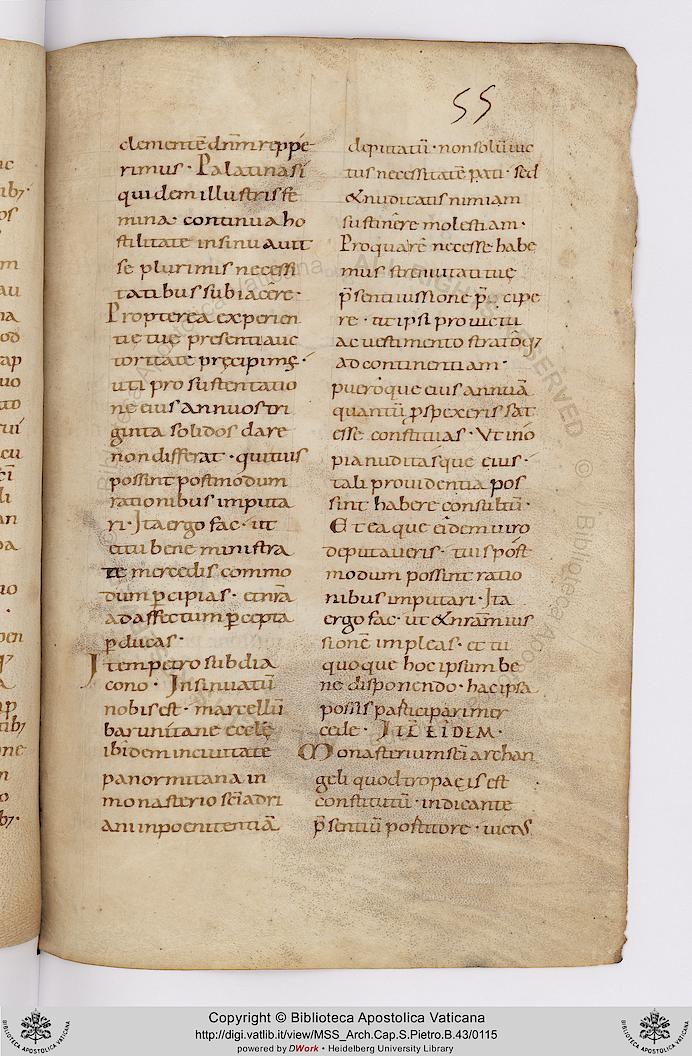 55
clementē dnm reppe
rimus · Palatina si
quidem illustris fe
mina · continua ho
stilitate insinuauit
se plurimis necessi
tatibus subiacere ·
Propterea experien
tie tue presenti auc
toritate pręcipimꝰ ·
uti pro sustentatio
ne eius annuos tri
ginta solidos dare
non differat · qui tuis
possint postmodum
rationibus imputa
ri · Ita ergo fac · ut
et tu bene ministra
te mercedis commo
dum ꝑcipias · et nrā
ad affectum ꝑcepta
ꝑducas ·
Item petro subdia
cono · Insinuatū
nobis est · marcellū
barunitane eccłę
ibidem in ciuitate
panormitana in
monasterio scī adri
ani in poenitentiā
deputatū · non solū uic
tus necessitatē pati · sed
& nuditatis nimiam
sustinere molestiam ·
Pro qua re necesse habe
mus strenuitati tuę
p̄senti iussione p̄cipe
re · ut ipsi pro uictu
ac uestimento stratoq;
ad continentiam ·
pueroque eius annuā
quantū ꝑspexeris sat
esse constituas · Ut ino
pia nuditasque eius ·
tali prouidentia pos
sint habere consultū ·
Et ea que eidem uiro
deputaueris · tuis post
modum possint ratio
nibus imputari · Ita
ergo fac · ut & nram ius
sionē impleas · et tu
quoque hoc ipsum be
ne disponendo · hac ipsa
possis participari mer
cede · ITĒ EIDEM ·
Monasterium scī archan
geli quod tropaeis est
constitutū · indicante
p̄sentiū portitore · uictas
Copyright © Biblioteca Apostolica Vaticana
http://digi.vatlib.it/view/MSS_Arch.Cap.S.Pietro.B.43/0115
powered by DWork • Heidelberg University Library